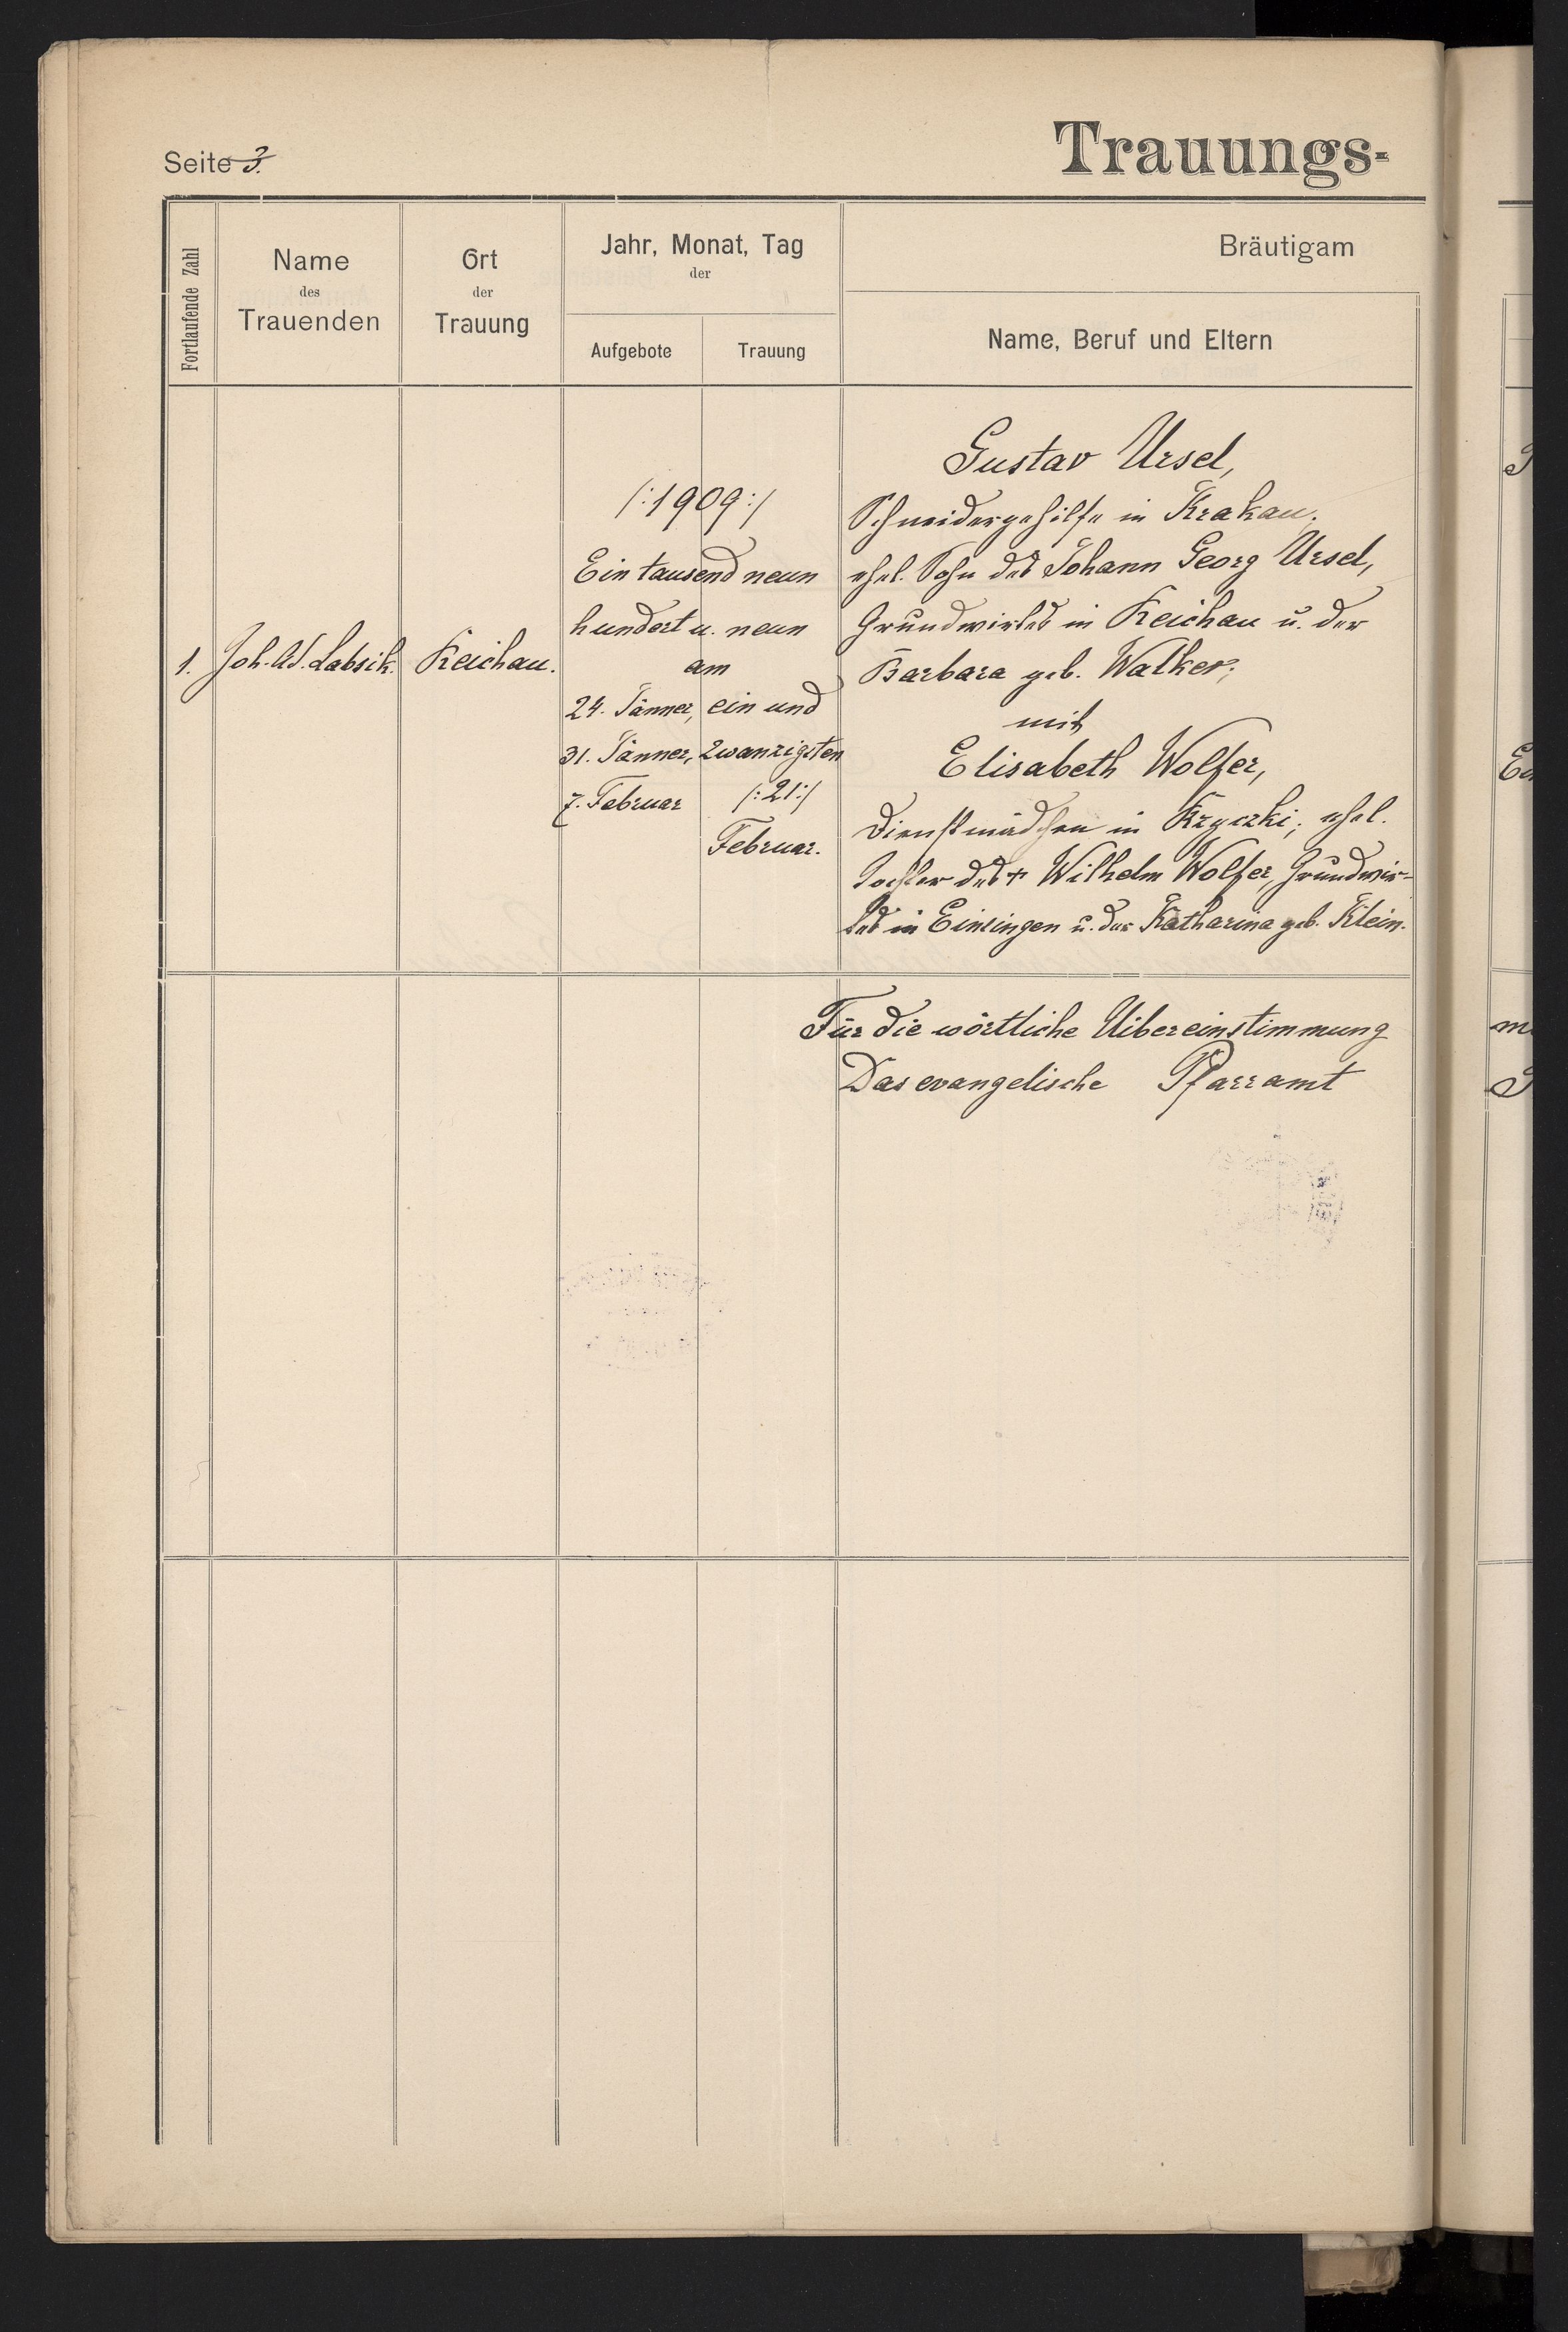 Seite 3.
Trauungs-
Fortlaufende Zahl
Name
des
Trauenden
Ort
der
Trauung
Jahr, Monat, Tag
der
Aufgebote
Trauung
Bräutigam
Name, Beruf und Eltern
1.
Joh. Ad. Labsik.
Reichau.
/:1909:/
Ein tausend neun
hundert u. neun
am
24. Jänner,
31. Jänner,
7. Februar
ein und
zwanzigsten
/:21:/
Februar.
Gustav Ursel,
Schneidergehilfe in Krakau,
ehel. Sohn des Johann Georg Ursel,
Grundwirtes in Reichau u. der
Barbara geb. Walker;
mit
Elisabeth Wolfer,
Dienstmädchen in ehel.
Tochter des † Wilhelm Wolfer, Grundwir-
tes in Einsingen u. der Katharina geb. Klein.
Für die wörtliche Uibereinstimmung
Das evangelische Pfarramt